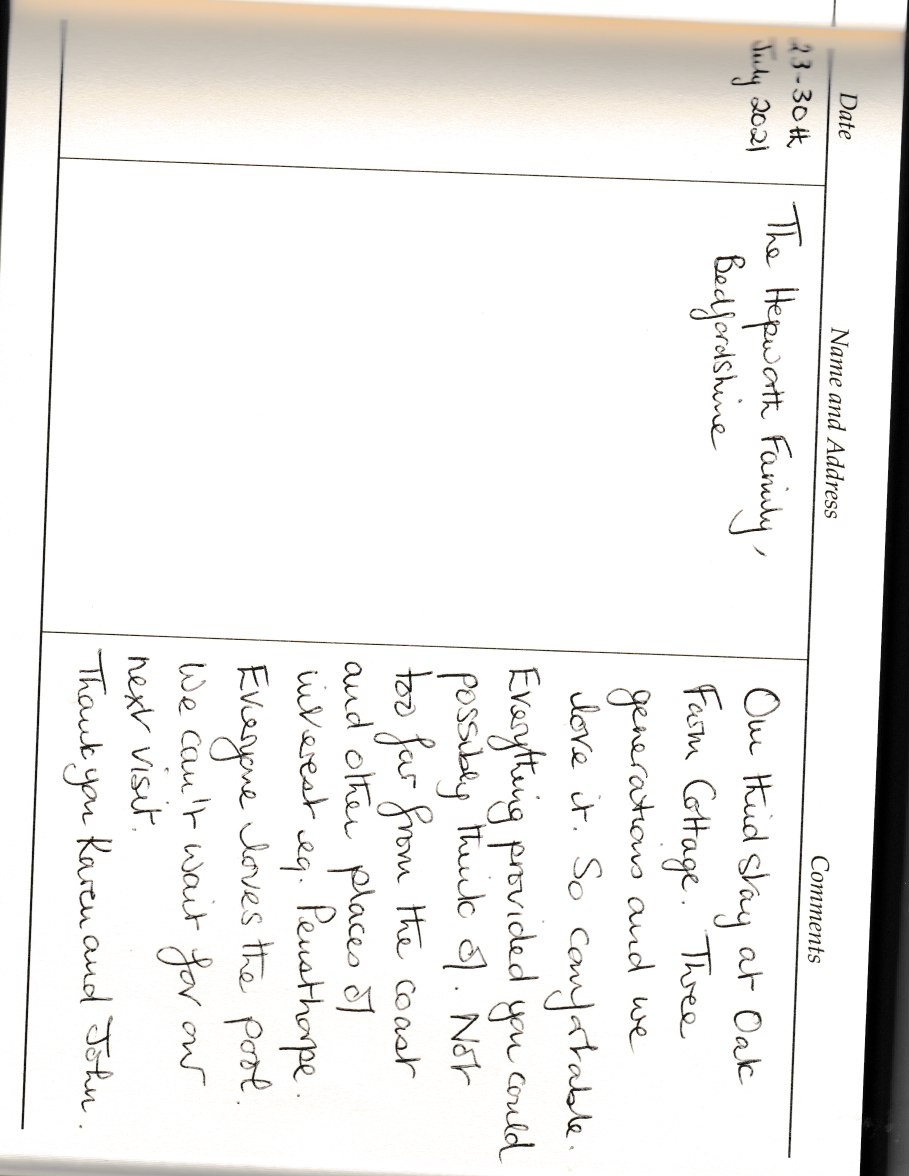 Date
Name and Address
Comments
23-30th
July 2021
The Hepworth Family,
Bedfordshire
Our third stay at Oak
Farm Cottage. Three
generations and we
love it. So comfortable.
Everything provided you could
possibly think of. Not
too far from the coast
and other places of
interest eg. Pensthorpe.
Everyone loves the pool.
We can't wait for our
next visit.
Thank you Karen and John.